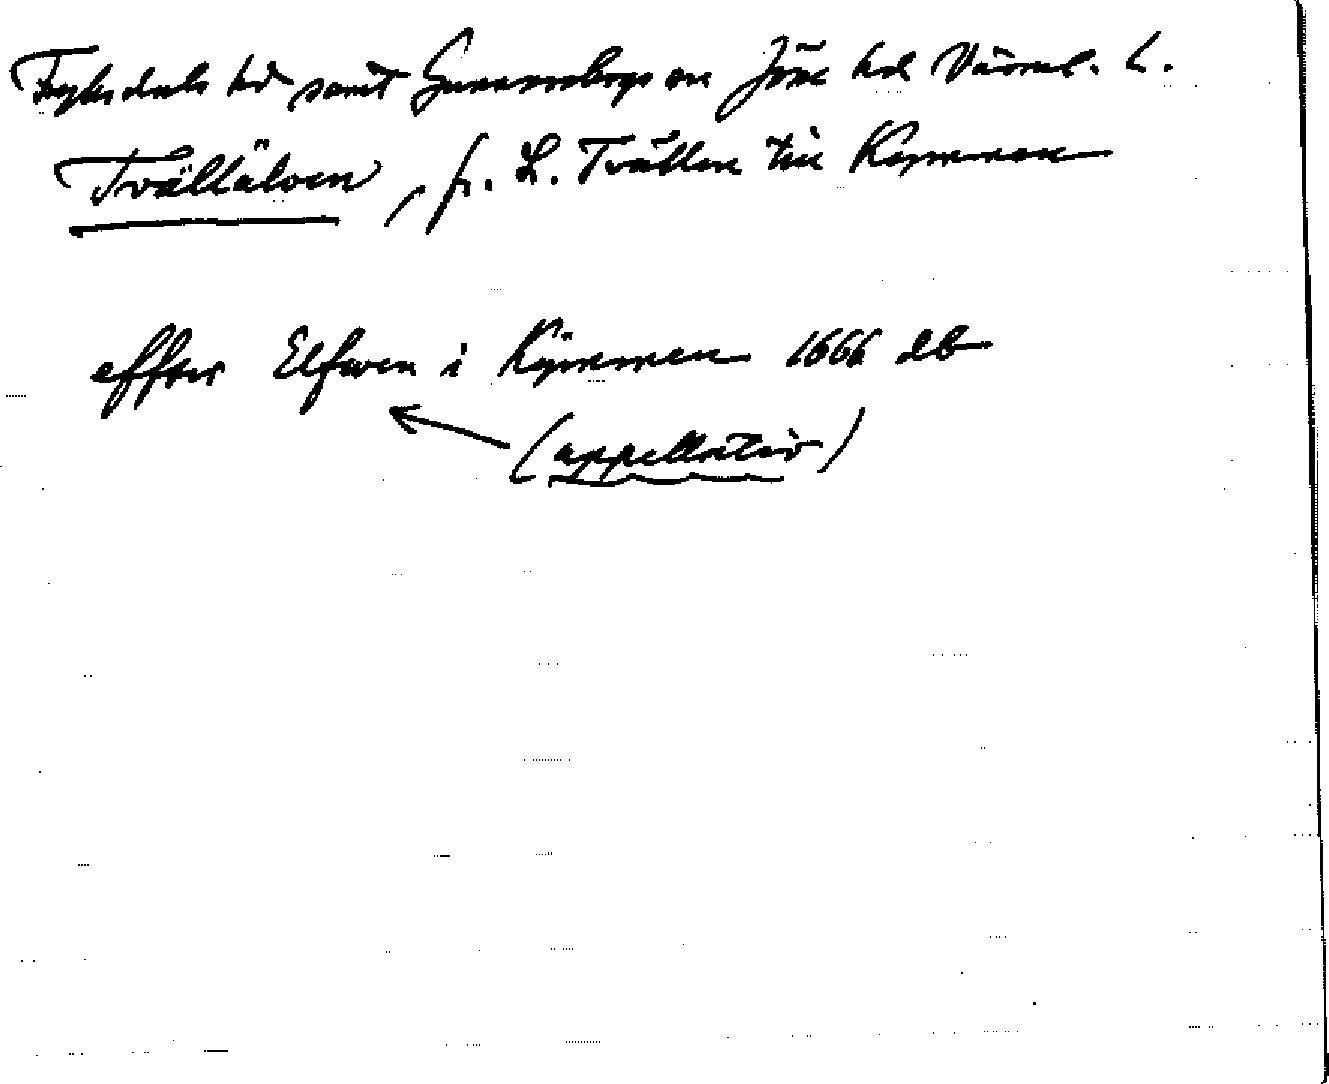 Fryksdals hd samt Gunnarskogs sn Jösse hd Värml. L.
Tvällälven, fr. L. Tvällen till Kymmen
effter Elfwen i Kymmen 1666 db
(appellativ)